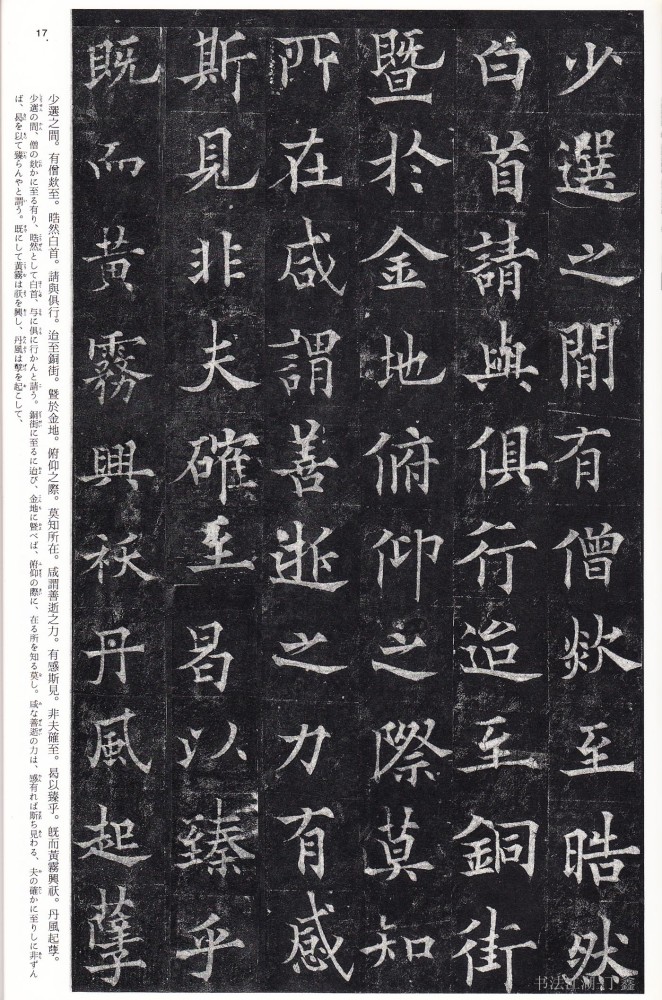 少選之間有僧欻至晧然
白首請與俱行迨至銅街
暨於金地俯仰之際莫知
所在咸謂善逝之力有感
斯見非夫確至曷以臻乎
既而黃霧興祅丹風起孽
少選之間。有僧欻至。晧然白首。請與俱行。迨至銅街。暨於金地。俯仰之際。莫知所在。咸謂善逝之力。有感斯見。非夫確至。曷以臻乎。既而黃霧興祅。丹風起孽。
少選の間、僧の欻かに至る有り、晧然として白首、与に俱に行かんと請う。銅街に至るに迨び、金地に暨べば、俯仰の際に、在る所を知る莫し。咸な善逝の力は、感有れば斯ち見わる、夫の確かに至りしに非ずん
ば、曷を以て臻らんやと謂う。既にして黃霧は祅を興し、丹風は孽を起こして、
17
书法江湖 丁鑫